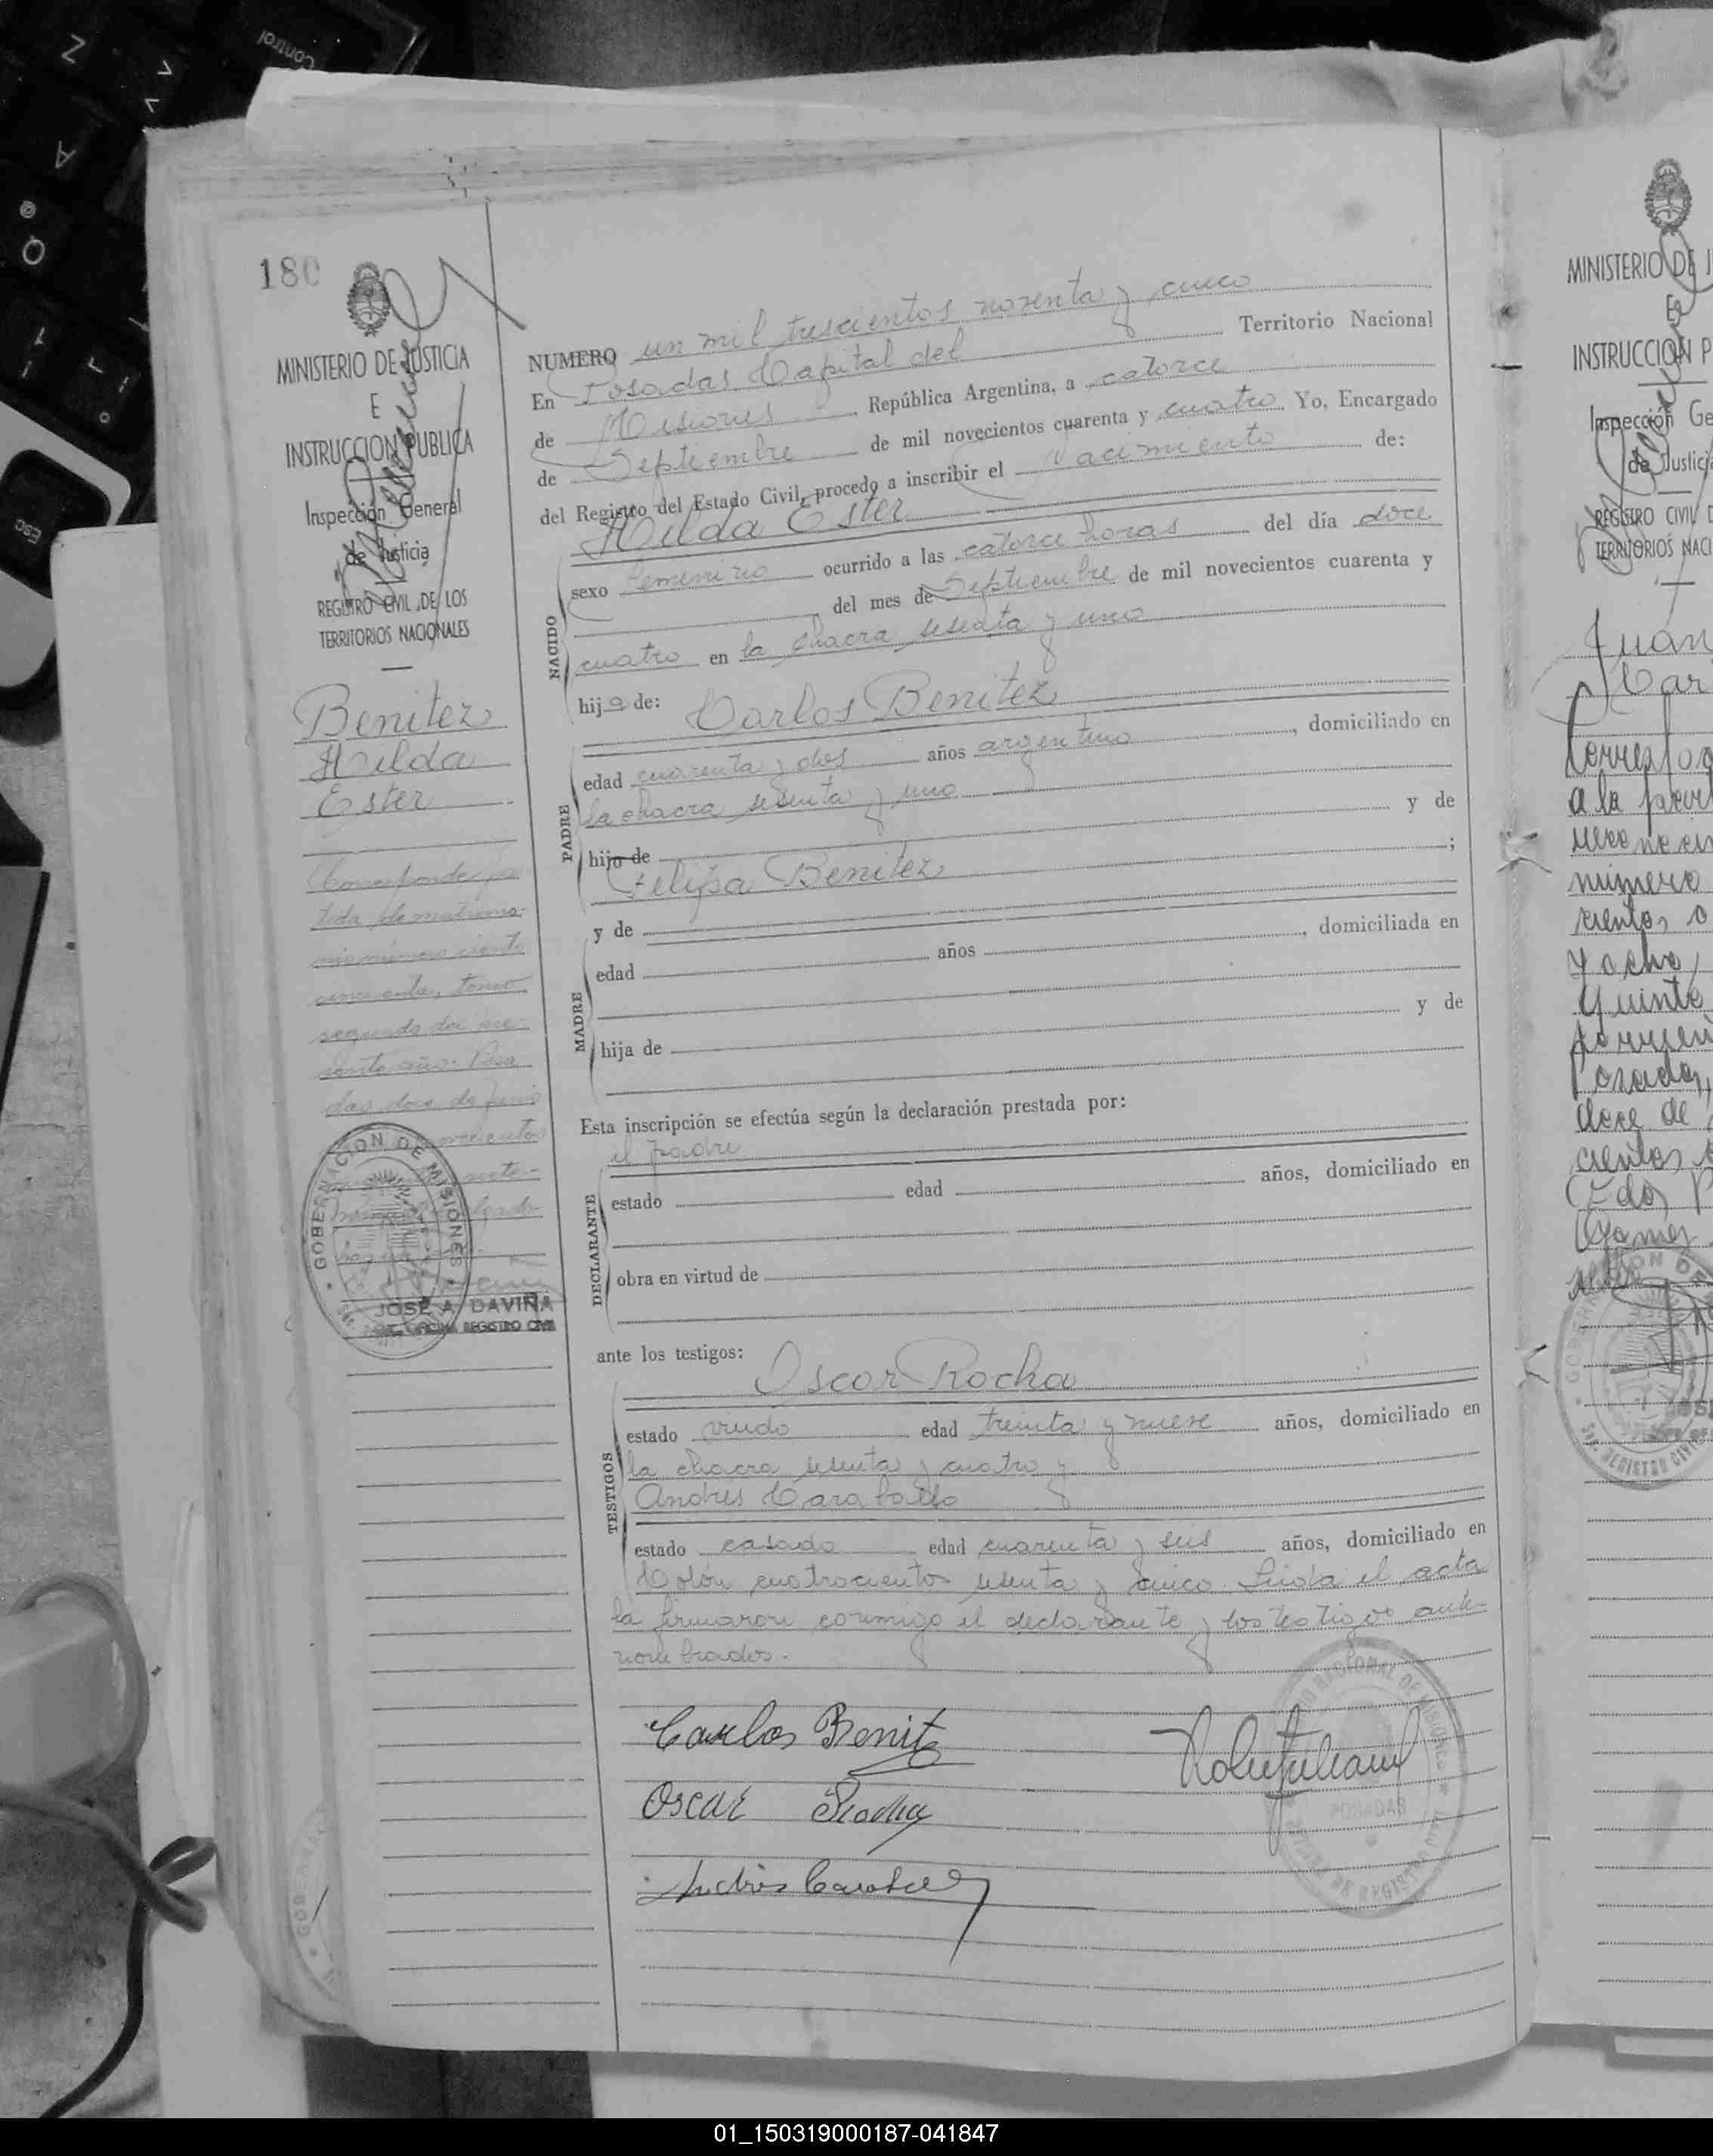 180
MINISTERIO DE JUSTICIA
E
INSTRUCCION PUBLICA
Inspección General
de Justicia
REGISTRO CIVIL DE LOS
TERRITORIOS NACIONALES
Benitez
Hilda
Ester
Corresponde par
tida de matrimo-
nio número ciento
cincuenta, tomo
segundo del pre-
sente año. Posa
das, doce de junio
GOBERNACION DE MISIONES
JOSE A. DAVIÑA
OFICINA REGISTRO CIVIL
NUMERO un mil trescientos noventa y cinco
En Posadas Capital del Territorio Nacional
de Misiones República Argentina, a catorce
de Septiembre de mil novecientos cuarenta y cuatro Yo, Encargado
del Registro del Estado Civil, procedo a inscribir el Nacimiento de:
Hilda Ester
NACIDO
sexo femenino ocurrido a las catorce horas del día doce
del mes de Septiembre de mil novecientos cuarenta y
cuatro en la chacra sesenta y uno
hija de: Carlos Benitez
PADRE
edad cuarenta y dos años argentino, domiciliado en
la chacra sesenta y uno
hijo de y de
Felipa Benitez;
y de
MADRE
edad años, domiciliada en
hija de y de
Esta inscripción se efectúa según la declaración prestada por:
el padre
DECLARANTE
estado edad años, domiciliado en
obra en virtud de
ante los testigos:
Oscar Rocha
TESTIGOS
estado viudo edad treinta y nueve años, domiciliado en
la chacra sesenta y cuatro y
Andres Caraballo
estado casado edad cuarenta y seis años, domiciliado en
Colón cuatrocientos sesenta y cinco. Leida el acta
la firmaron conmigo el declarante y los testigos ante-
nombrados.-
Carlos Benitz
Oscar Rocha
POSADAS
MINISTERIO DE J
E
INSTRUCCION P
Inspección Ge
de Justici
REGISTRO CIVIL D
TERRITORIOS NACI
Juan
Car
número
y ocho,
doce de
01_150319000187-041847